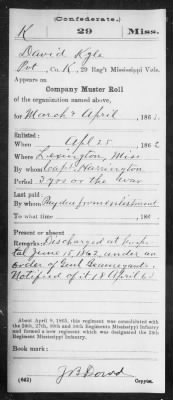 (Confederate.)
K 29 Miss.
David Kyle
Pvt, Co. K, 29 Reg't Mississippi Vols.
Appears on
Company Muster Roll
of the organization named above,
for March & April, 186
Enlisted:
When Apl 25, 1862
Where Lexington, Miss
By whom Capt Harrington
Period 3 yrs or the war
Last paid:
By whom Pay due from enlistment
To what time , 186 .
Present or absent
Remarks: Discharged at
June 15, 1862, under an
order of Genl Beauregard.
Notified of it 18 April 63
About April 9, 1865, this regiment was consolidated with
the 24th, 27th, 30th and 34th Regiments Mississippi Infantry
and formed a new regiment which was designated the 24th
Regiment Mississippi Infantry.
Book mark:
(642) Copyist.